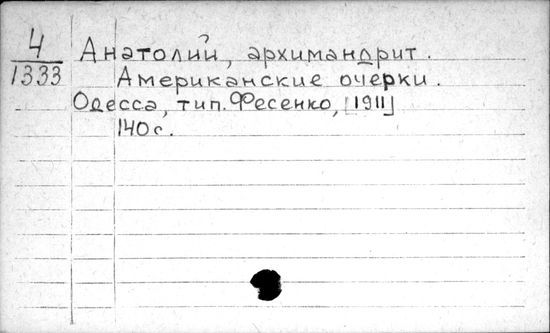 4
1333
Анатолий, архимандрит.
Американские очерки.
Одесса, тип. Фесенко, [1911]
140 с.